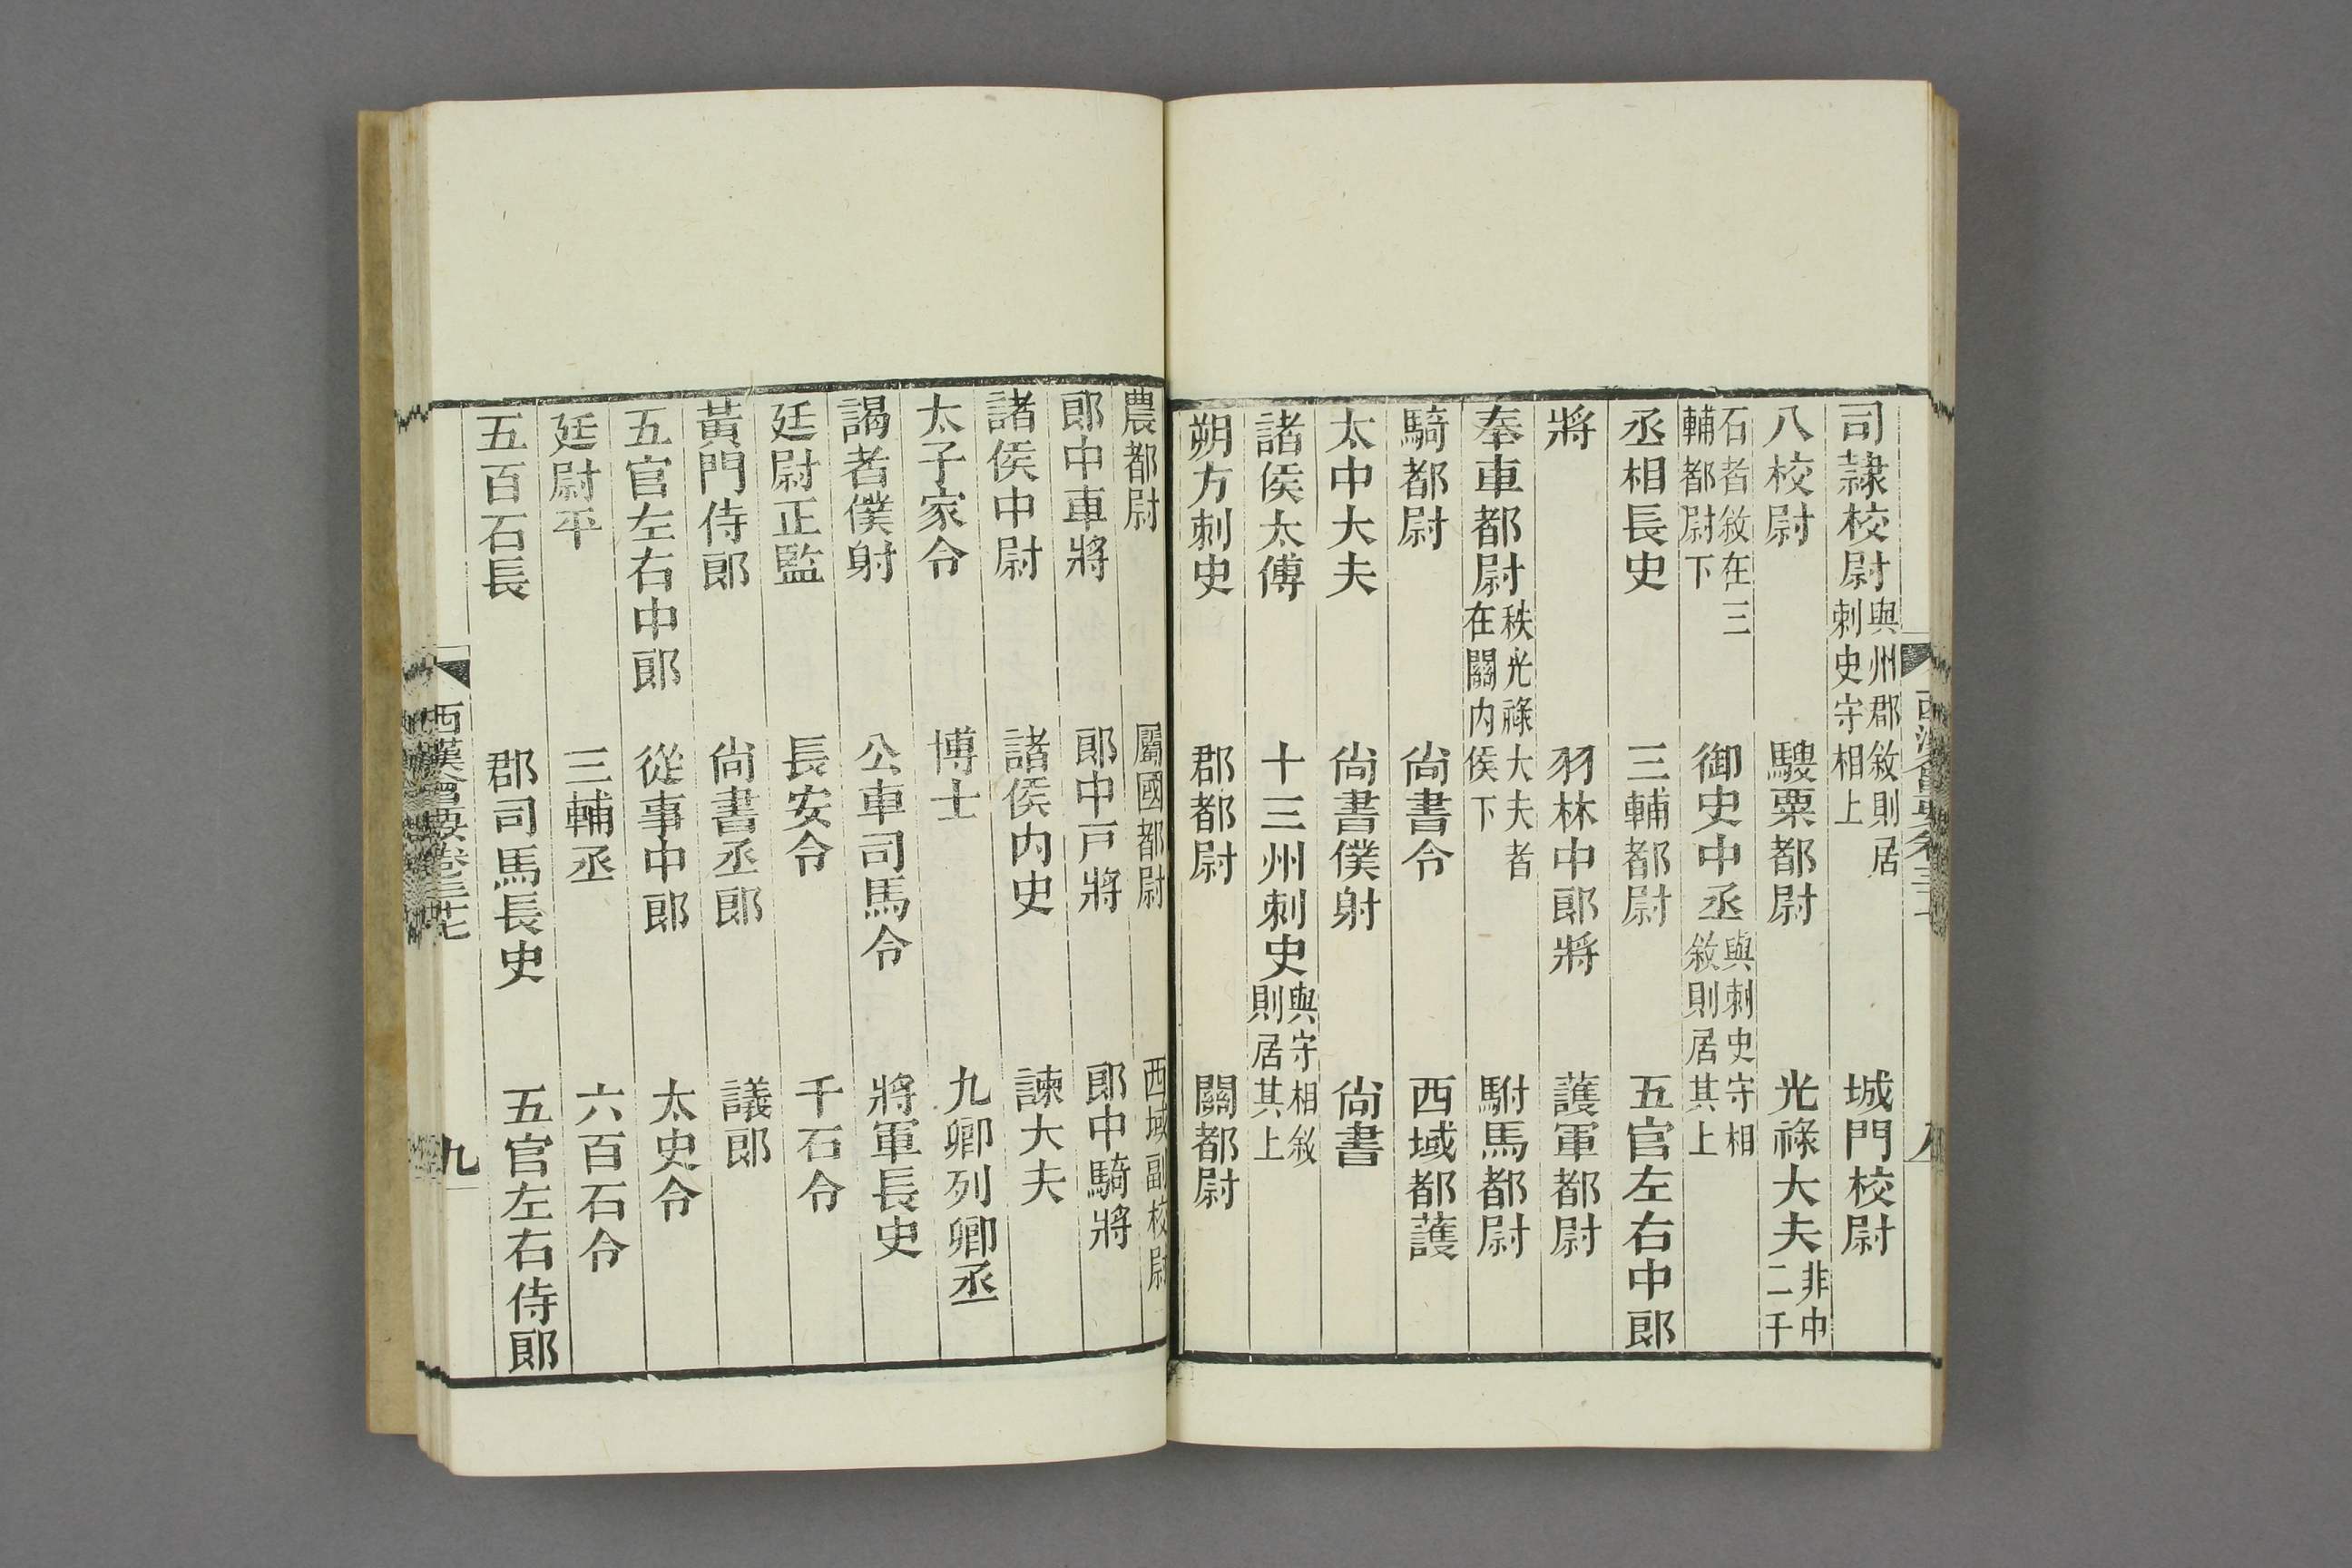 司隷校尉與州郡敘則居刺史守相上　城門校尉
八校尉　騪粟都尉　光祿大夫非中二千
石者敘在三輔都尉下　御史中丞與刺史守相敘則居其上
丞相長史　三輔都尉　五官左右中郎
將　羽林中郎將　護軍都尉
奉車都尉秩光祿大夫者在關内侯下　駙馬都尉
騎都尉　尙書令　西域都護
太中大夫　尙書僕射　尙書
諸侯太傅　十三州刺史與守相敘則居其上
朔方刺史　郡都尉　關都尉
農都尉　屬國都尉　西域副校尉
郎中車將　郎中戸將　郎中騎將
諸侯中尉　諸侯内史　諫大夫
太子家令　博士　九卿列卿丞
謁者僕射　公車司馬令　將軍長史
廷尉正監　長安令　千石令
黃門侍郎　尙書丞郎　議郎
五官左右中郎　從事中郎　太史令
廷尉平　三輔丞　六百石令
五百石長　郡司馬長史　五官左右侍郎
西漢會要卷三十七　九